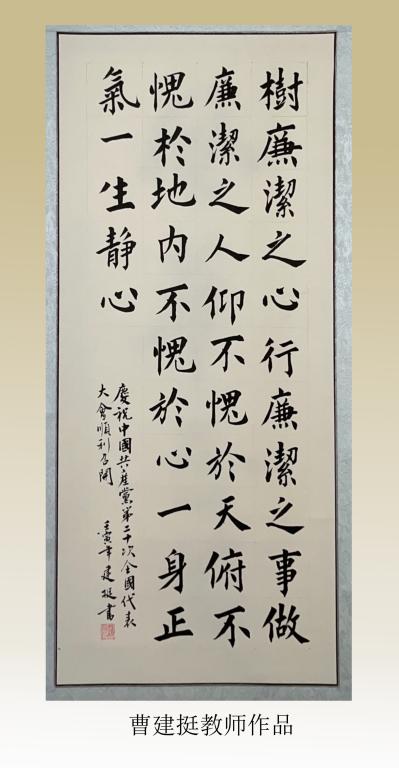 樹廉潔之心行廉潔之事做
廉潔之人仰不愧於天俯不
愧於地内不愧於心一身正
氣一生静心
慶祝中國共產黨第二十次全國代表
大會順利召開
壬寅年建挺書
曹建挺教师作品